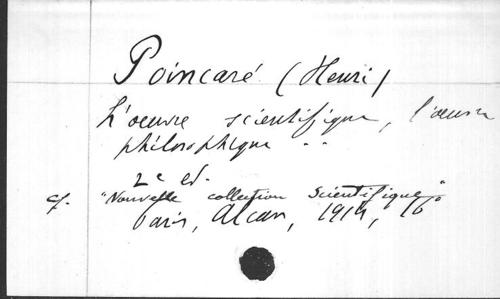 Poincaré (Henri)
L'oeuvre scientifique, l'oeuvre
philosophique . .
2e ed.
cf. "Nouvelle collection scientifique"
Paris, Alcan, 1914, 16°